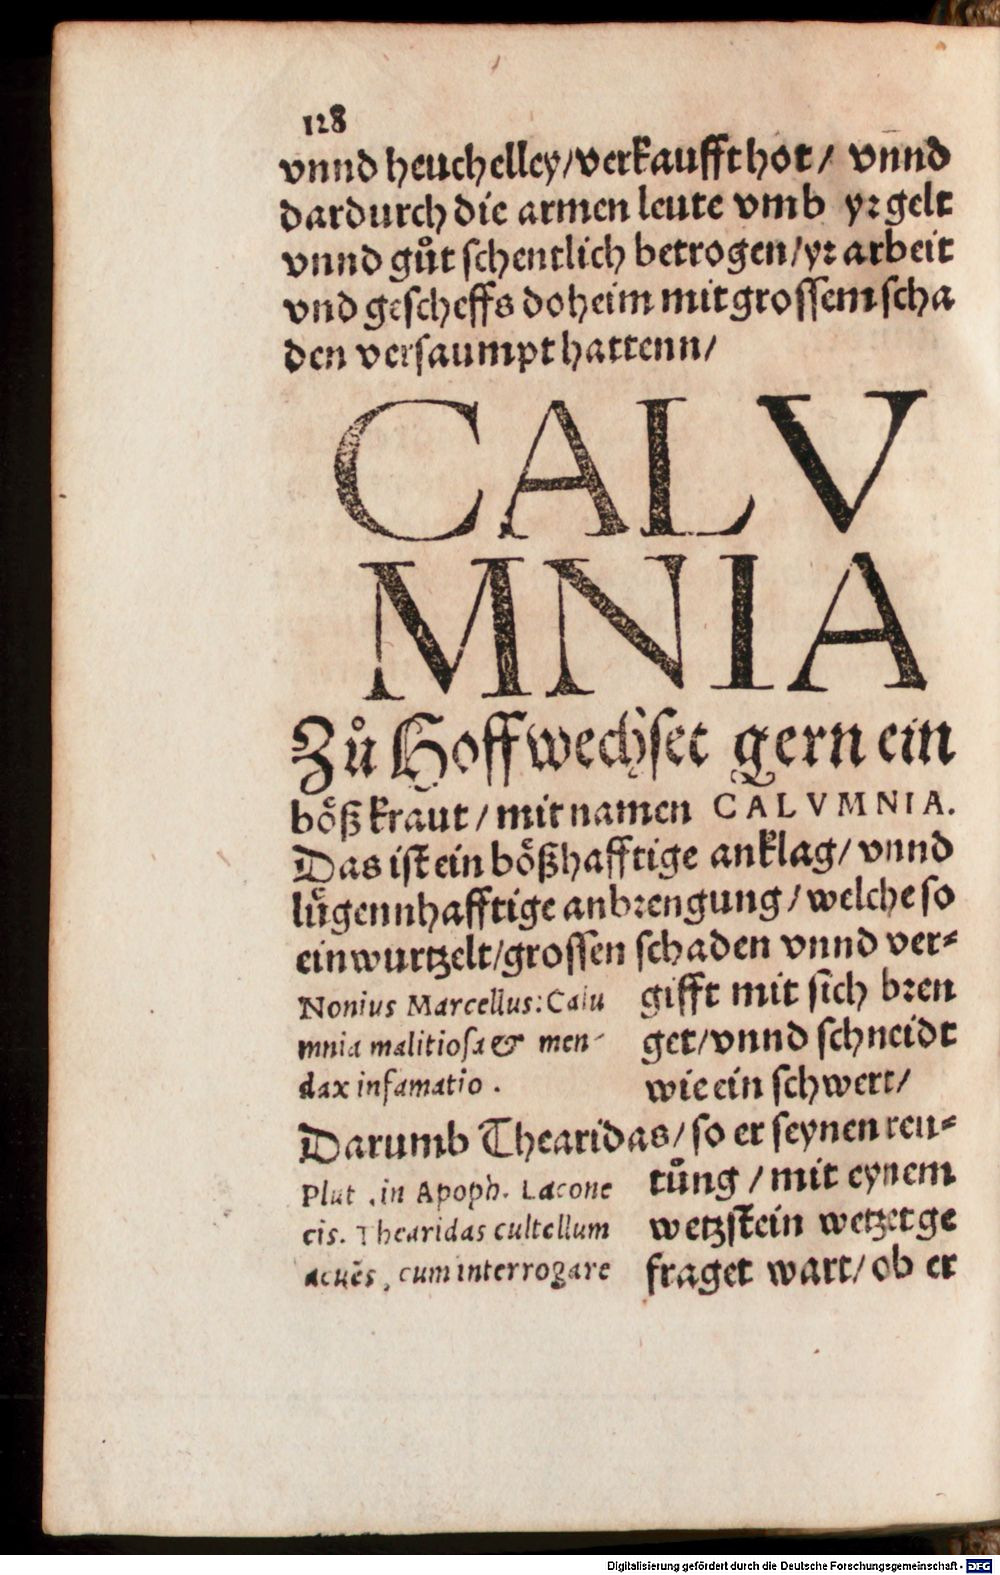 128
vnnd heuchelley/verkaufft hot/ vnnd
dardurch die armen leute vmb yꝛ gelt
vnnd gůt schentlich betrogen/yꝛ arbeit
vnd gescheffs doheim mit grossem scha
den versaumpt hattenn/
CALV
MNIA
Zů Hoff wechset gern ein
bőß kraut / mit namen CALVMNIA.
Das ist ein bőßhafftige anklag/ vnnd
lůgennhafftige anbꝛengung / welche so
einwurtzelt/grossen schaden vnnd ver⸗
gifft mit sich bꝛen
get/vnnd schneidt
wie ein schwert/
Nonius Marcellus: Calu
mnia malitiosa & men-
dax infamatio.
Darumb Thearidas/ so er seynen reu⸗
tůng / mit eynem
wetzstein wetzet ge
fraget wart/ ob er
Plut .in Apoph. Lacone
cis. Thearidas cultellum
acuẽs, cum interrogare
Digitalisierung gefördert durch die Deutsche Forschungsgemeinschaft - DFG